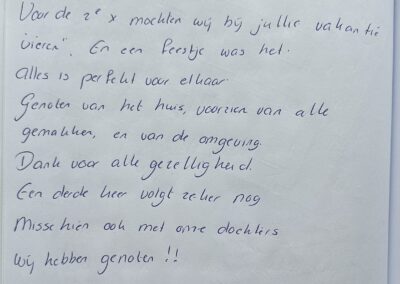 Voor de 2e x mochten wij bij jullie vakantie
"vieren". En een feestje was het.
Alles is perfekt voor elkaar.
Genoten van het huis, voorzien van alle
gemakken, en van de omgeving.
Dank voor alle gezelligheid.
Een derde keer volgt zeker nog
Misschien ook met onze dochters
Wij hebben genoten !!